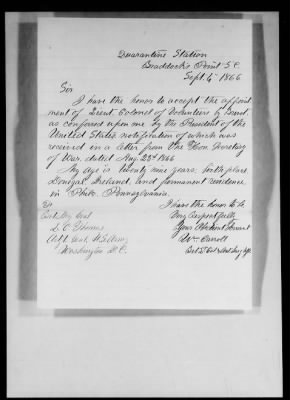 Quarantine Station
Braddock's Point S.C.
Sept. 4th 1866
Sir
I have the honor to accept the appoint
ment of Lieut. Colonel of Volunteers by Brevet,
as conferred upon me by the President of the
United States notification of which was
received in a letter from the Hon. Secretary
of War, dated Aug. 23d 1866
My age is twenty nine years; birth place
Donegal, Ireland, and permanent residence
in Phila. Pennsylvania.
I have the honor to be
Very Respectfully
Your Obedient Servant
Wm Carroll
To
Brt. Maj. Genl
L. Thomas
Adjt. Genl. U.S. Army
Washington D.C.